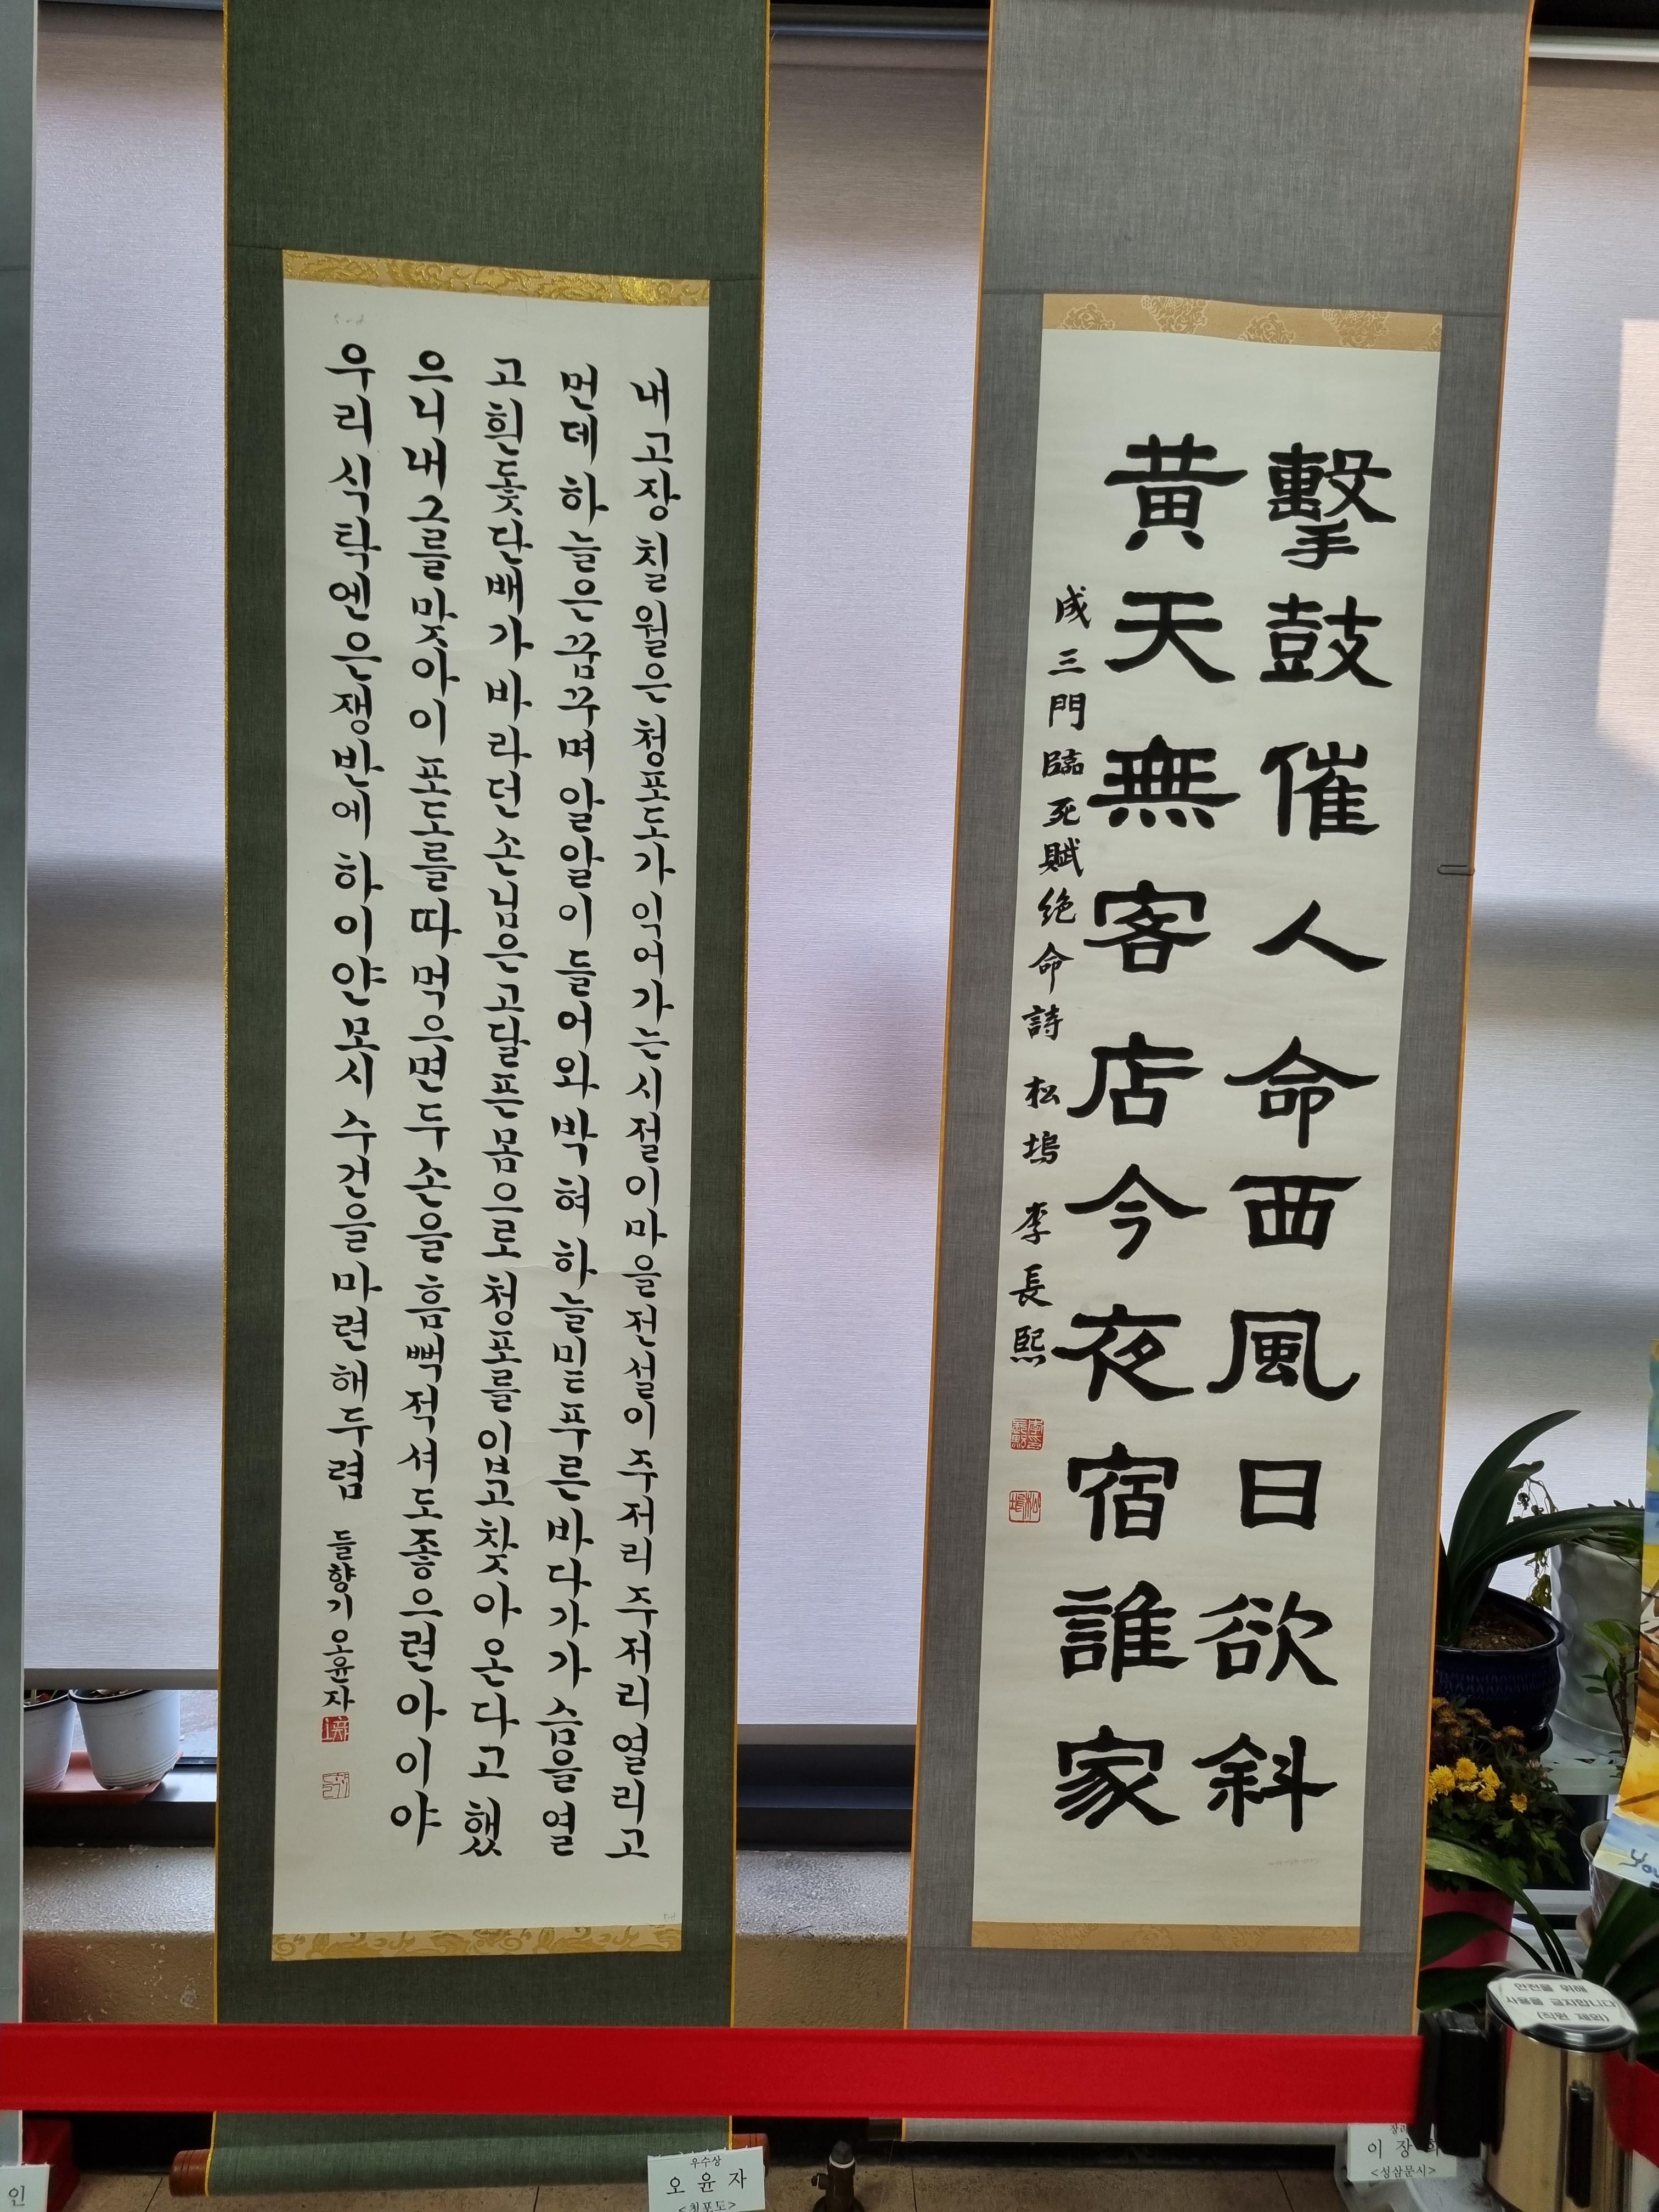 擊鼓催人命西風日欲斜
黃天無客店今夜宿誰家
成三門臨死賦絶命詩 松塢 李長熙
내고장 칠월은 청포도가 익어가는 시절이 마을 전설이 주저리 주저리 열리고
먼데 하늘은 꿈꾸며 알알이 들어와 박혀 하늘 밑 푸른바다가 가슴을 열
고 흰돛단배가 바라던 손님은 고달픈 몸으로 청포를 입고 찾아온다고 했
으니 내 그를 맞아 이 포도를 따 먹으면 두 손을 흠뻑 적셔도 좋으련 아이야
우리 식탁엔 은쟁반에 하이얀 모시 수건을 마련해 두렴 들향기 오윤자
우수상
오 윤 자
<청포도>
이 장 희
<성삼문시>
안전을 위해
사용을 금지합니다
(직원 제외)
인
You